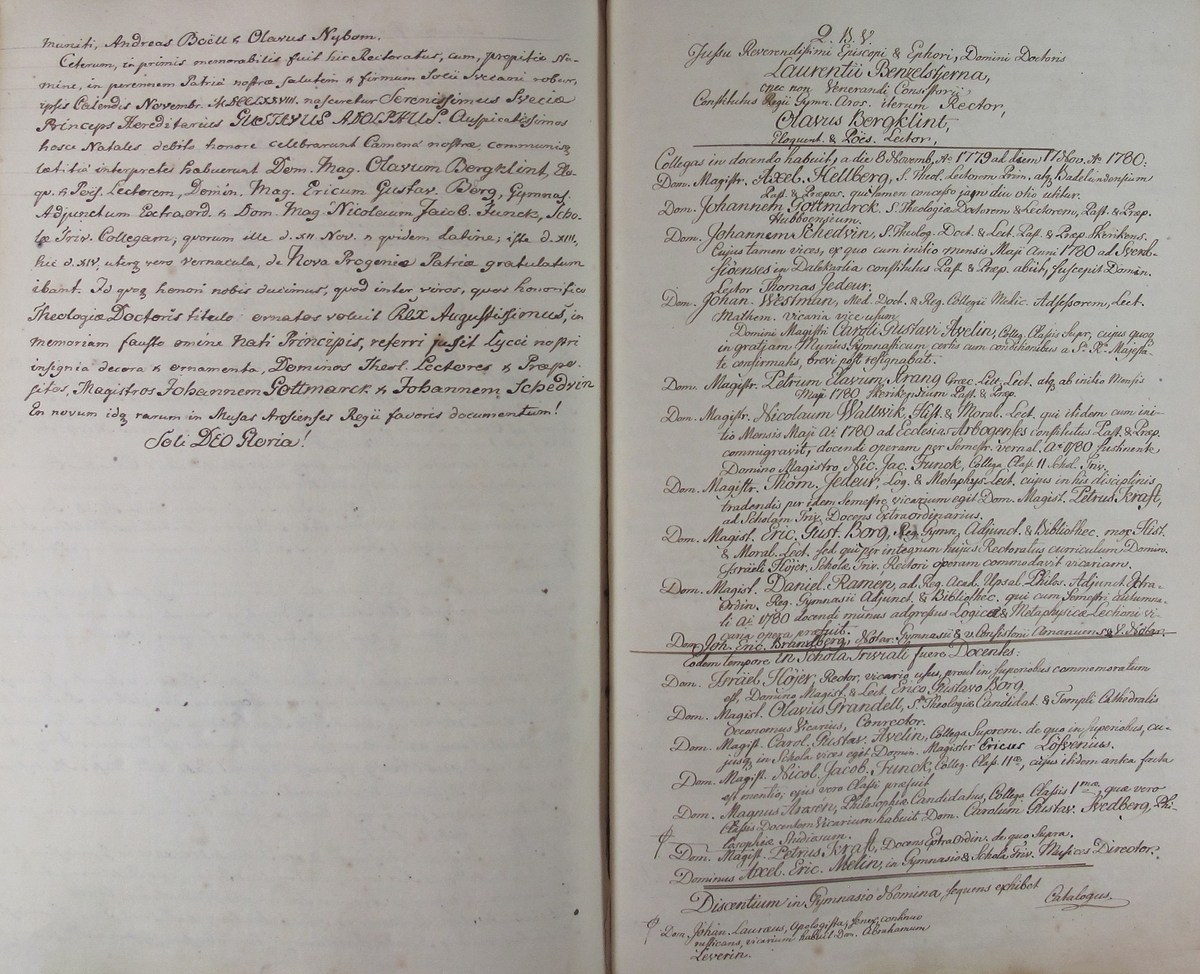 muniti, Andreas Boëll & Olavus Nybom.
Ceterum, in primis memorabilis fuit hic Rectoratus, cum, propitio Nu-
mine, in perennem Patriæ nostræ salutem & firmum Solii Svecani robur,
ipsis Calendis Novembr. MDCCLXXVIII. nasceretur Serenissimus Sveciæ
Princeps Hereditarius GUSTAVUS ADOLPHUS. Auspicatissimos
hosce Natales debito honore celebrarunt Camenæ nostræ, communisq;
lætitiæ interpretes habuerunt Dom. Mag. Olavum Bergklint, Elo-
qv. & Poës. Lectorem, Domin. Mag. Ericum Gustav. Borg, Gymnas.
Adjunctum Extraord. & Dom. Mag. Nicolaum Jacob. Funck, Scho-
læ Triv. Collegam; quorum ille d. XII Nov. & quidem Latine; iste d. XIII,
hic d. XIV, uterq; vero vernacula, de Nova Progenie Patriæ gratulatum
ibant. Id quoq; honori nobis ducimus, quod inter viros, quos honorifico
Theologiæ Doctoris titulo ornatos voluit REX Augustissimus, in
memoriam fausto omine nati Principis, referri jussit Lycei nostri
insignia decora & ornamenta, Dominos Theol. Lectores & Præpo-
sitos, Magistros Johannem Gottmarck & Johannem Schedvin
En novum idq; rarum in Musas Arosienses Regii favoris documentum!
Soli DEO Gloria!
Q. B. V.
Jussu Reverendissimi Episcopi & Ephori, Domini Doctoris
Laurentii Benzelstjerna,
nec non Venerandi Consistorii
Constitutus Regii Gymn. Aros. iterum Rector,
Olavus Bergklint,
Eloquent. & Poës. Lector,
Collegas in docendo habuit, a die 8 Novemb. Ao 1779 ad diem 17 Nov. Ao 1780:
Dom. Magistr. Axel. Hellberg, S. Theol. Lectorem Prim. atq; Badelundensium
Past. & Præpos. qui tamen concesso jam diu otio utitur.
Dom. Johannem Gottmarck. S. Theologiæ Doctorem & Lectorem, Past. & Præp.
Hubboensium.
Dom. Johannem Schedvin, S. Theolog. Doct. & Lect. Past. & Præp. Skerikens.
Cujus tamen vices, ex quo cum initio mensis Maji Anni 1780 ad Sverd-
sjöenses in Dalekarlia constitutus Past. & Præp. abiit, suscepit Domin.
Lector Thomas Jedeur.
Dom. Johan. Westman, Med. Doct. & Reg. Collegii Medic. Adsessorem, Lect.
Mathem. vicaria vice usum
Domini Magistri Caroli Gustavi Avelin, Colleg. Classis Supr. cujus quoq
in gratiam Munus Gymnasticum certis cum conditionibus a Sa Ra Majesta-
te confirmatis, brevi post resignabat.
Dom. Magistr. Petrum Olavum Krang Græc. Litt. Lect. atq; ab initio Mensis
Maji 1780 Skerikensium Past. & Præp.
Dom. Magistr. Nicolaum Wallvik, Hist. & Moral. Lect. qui itidem cum ini-
tio Mensis Maji Ai 1780 ad Ecclesias Arbogenses constitutus Past. & Præp.
commigravit, docendi operam per Semestr. vernal. Ao 1780 sustinente
Domino Magistro, Nic. Jac. Funck, Collega Class. II Schol. Triv.
Dom. Magistr. Thom. Jedeur, Log. & Metaphys. Lect. cujus in his disciplinis
tradendis per idem Semestre vicarium egit Dom. Magist. Petrus Kraft,
ad Scholam Triv. Docens Extraordinarius.
Dom. Magist. Eric. Gust. Borg, Reg. Gymn. Adjunct. & Bibliothec. mox Hist.
& Moral. Lect. sed qui per integrum hujus Rectoratus curriculum Domin.
Israëli Höjer, Scholæ Triv. Rectori operam commodavit vicariam.
Dom. Magist. Daniel. Ramen, ad Reg. Acad. Upsal. Philos. Adjunct. Extra-
Ordin. Reg. Gymnasii Adjunct. & Bibliothec. qui cum Semestri autumna-
li Ai 1780 docendi munus adgressus Logicæ & Metaphysicæ Lectioni vi-
caria opera præfuit.
Dom. Joh. Eric. Brandberg, Notar. Gymnasii & v. Consistorii Amanuens & V. Notar.
Eodem tempore in Schola Triviali fuere Docentes:
Dom. Israël Höjer, Rector, vicario usus, prout in superioribus commemoratum
est, Domino Magist. & Lect. Erico Gustavo Borg
Dom. Magist. Olavus Grandell, S. Theologiæ Candidat. & Templi Cathedralis
Oeconomus Vicarius, Conrector.
Dom. Magist. Carol. Gustav. Avelin, Collega Suprem. de quo in superioribus, cu-
jusq; in Schola vices egit Domin. Magister Ericus Löfvenius.
Dom. Magist. Nicol. Jacob. Funck, Colleg. Class. IIæ, cujus itidem antea facta
est mentio, ejus vero Classi præfuit
Dom. Magnus Arosen, Philosophiæ Candidatus, Collega Classis 1mæ, quæ vero
Classis Docentem Vicarium habuit Dom. Carolum Gustav. Hedberg, Phi-
losophiæ Studiosum.
Dom. Magist. Petrus Kraft, Docens Extra Ordin. de quo Supra.
Dominus Axel. Eric. Melin, in Gymnasio & Schola Triv. Musices Director.
Discentium in Gymnasio Nomina sequens exhibet
Catalogus
Dom. Johan. Lauræus, Apologista, senex, continuo
rusticans, vicarium habuit Dom. Abrahamum
Leverin.